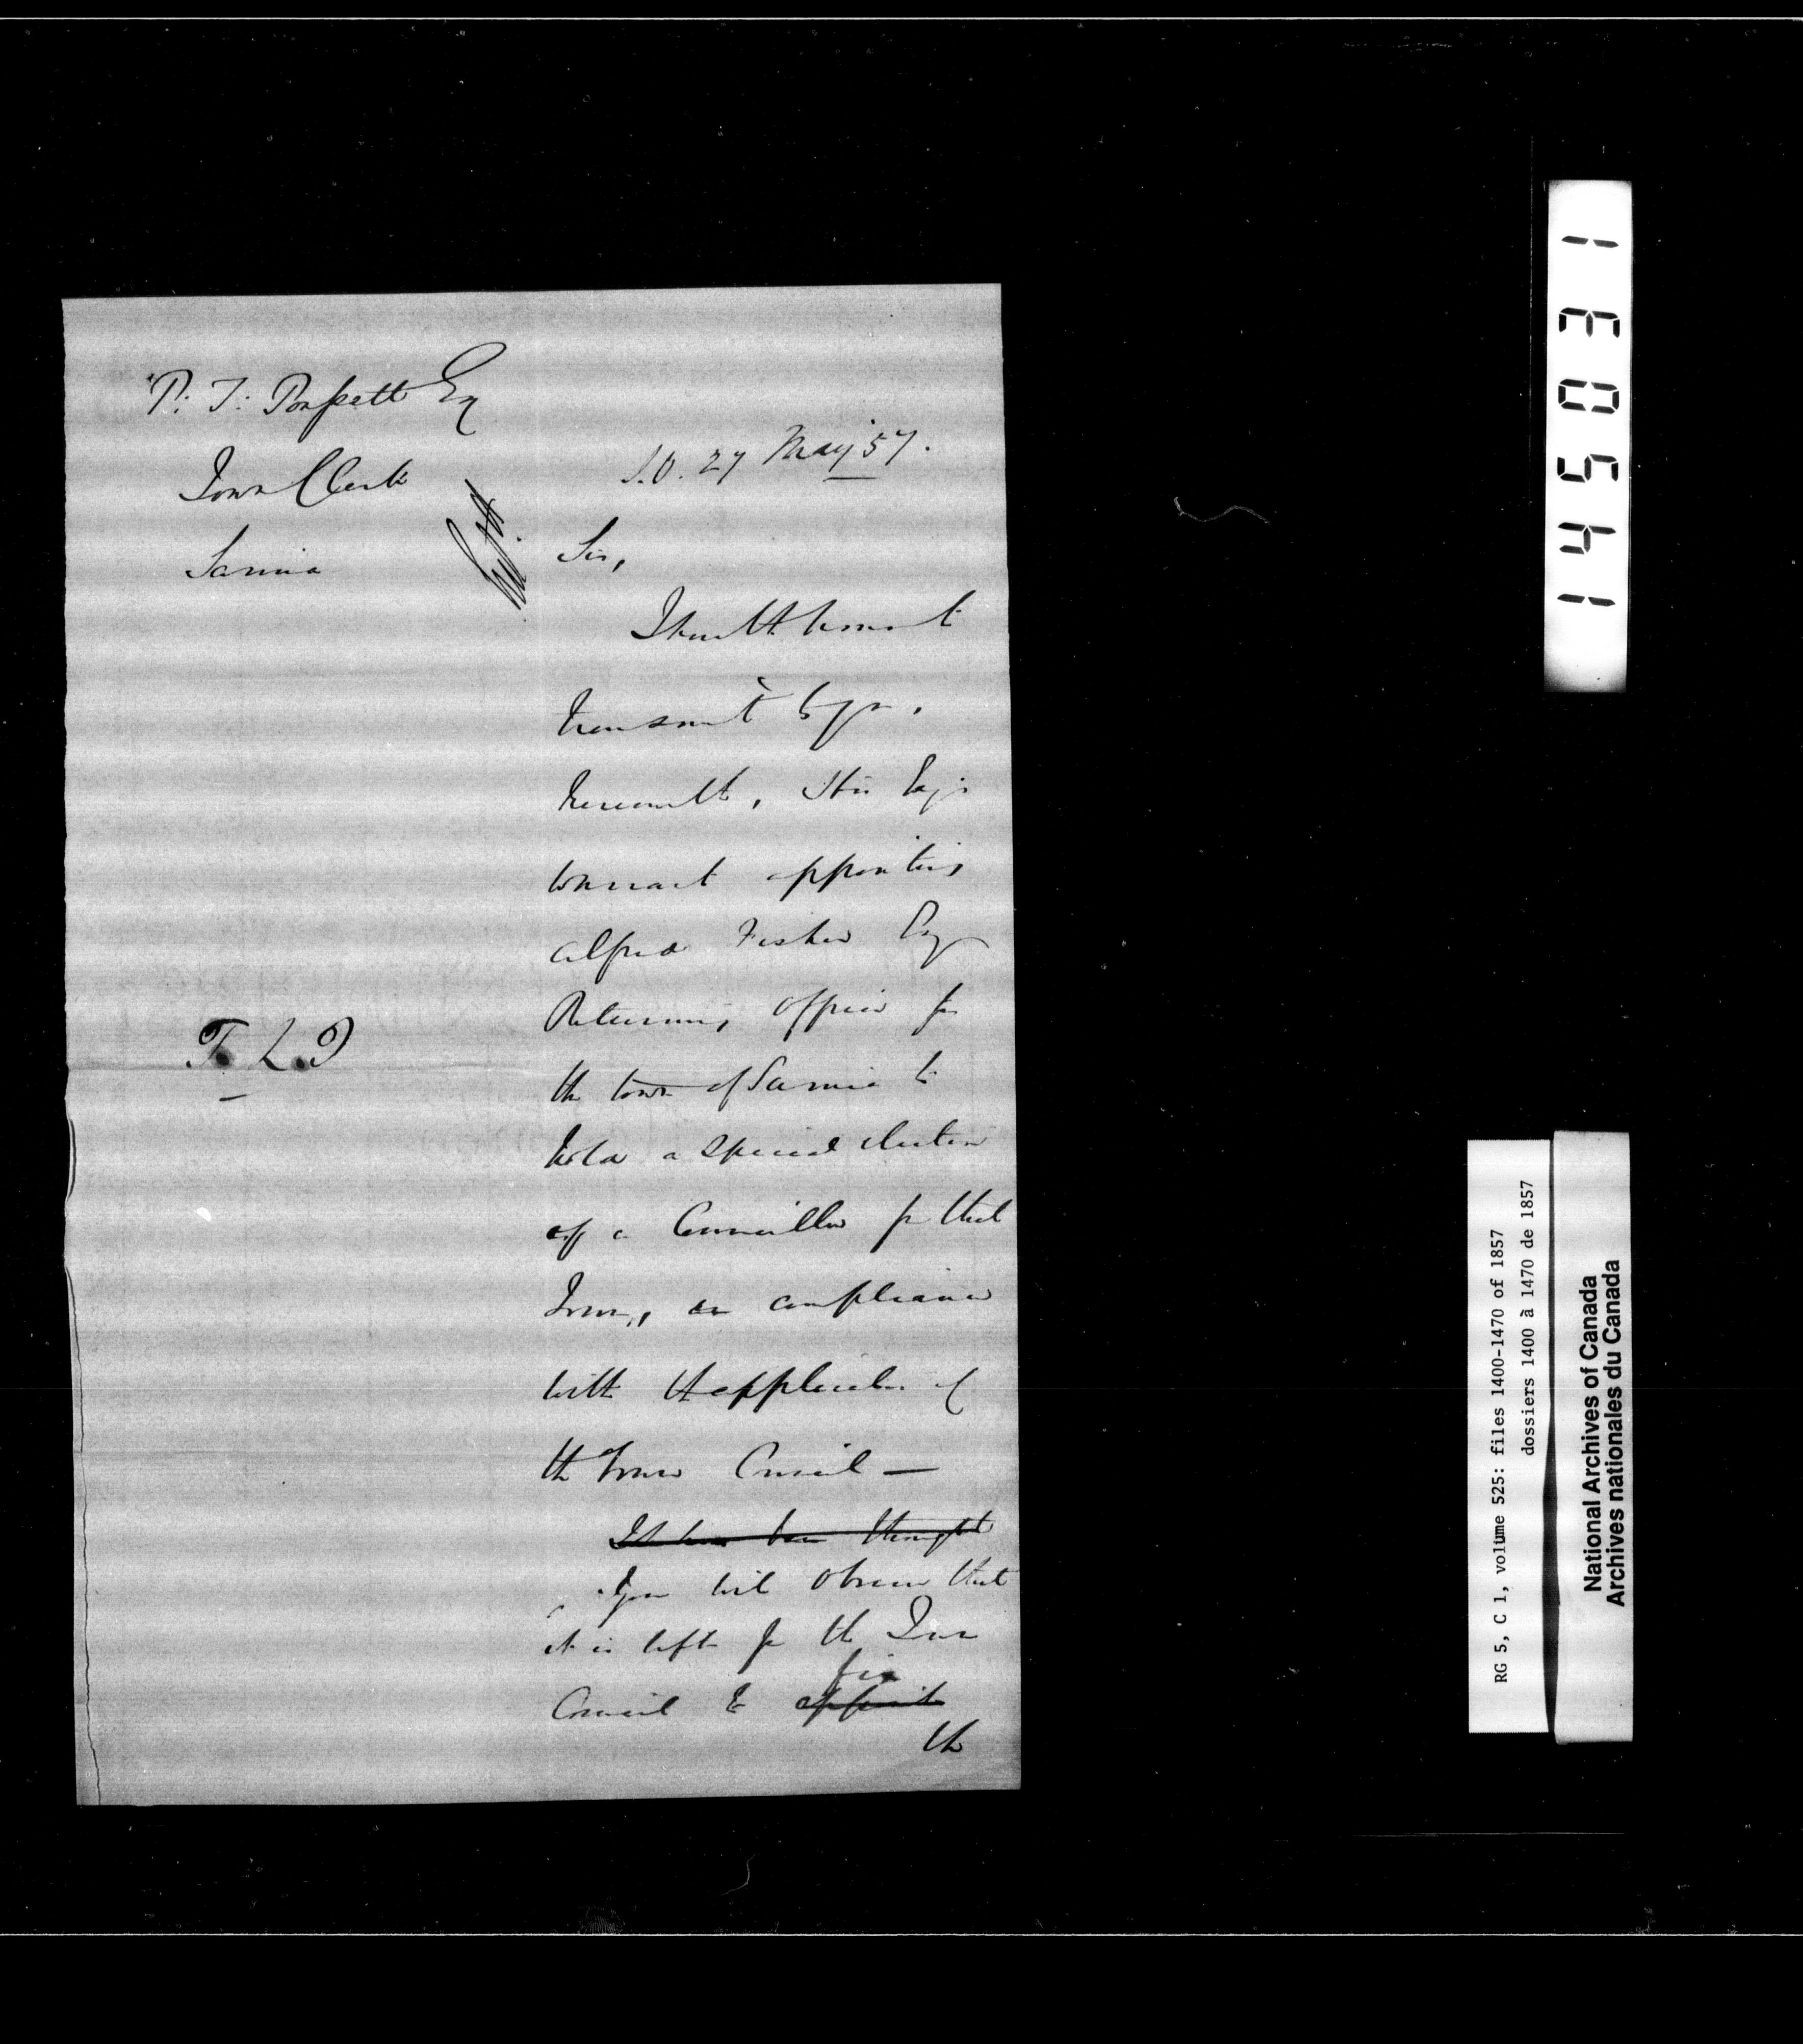 P. T. Poussett Esq
Town Clerk
Sarnia
S.O. 27 May '57.
Sir,
I have the honor to
transmit to you,
herewith, His Exy's
warrant appointing
Alfred Fisher Esq
Returning Officer for
the town of Sarnia to
hold a special election
of a Councillor for that
Town, in compliance
with the application of
the Town Council —
It has been thought
You will observe that
it is left for the Town
fix
Council to appoint
the
T. L. D
145031
RG 5, C 1, volume 525: files 1400-1470 of 1857
dossiers 1400 à 1470 de 1857
National Archives of Canada
Archives nationales du Canada